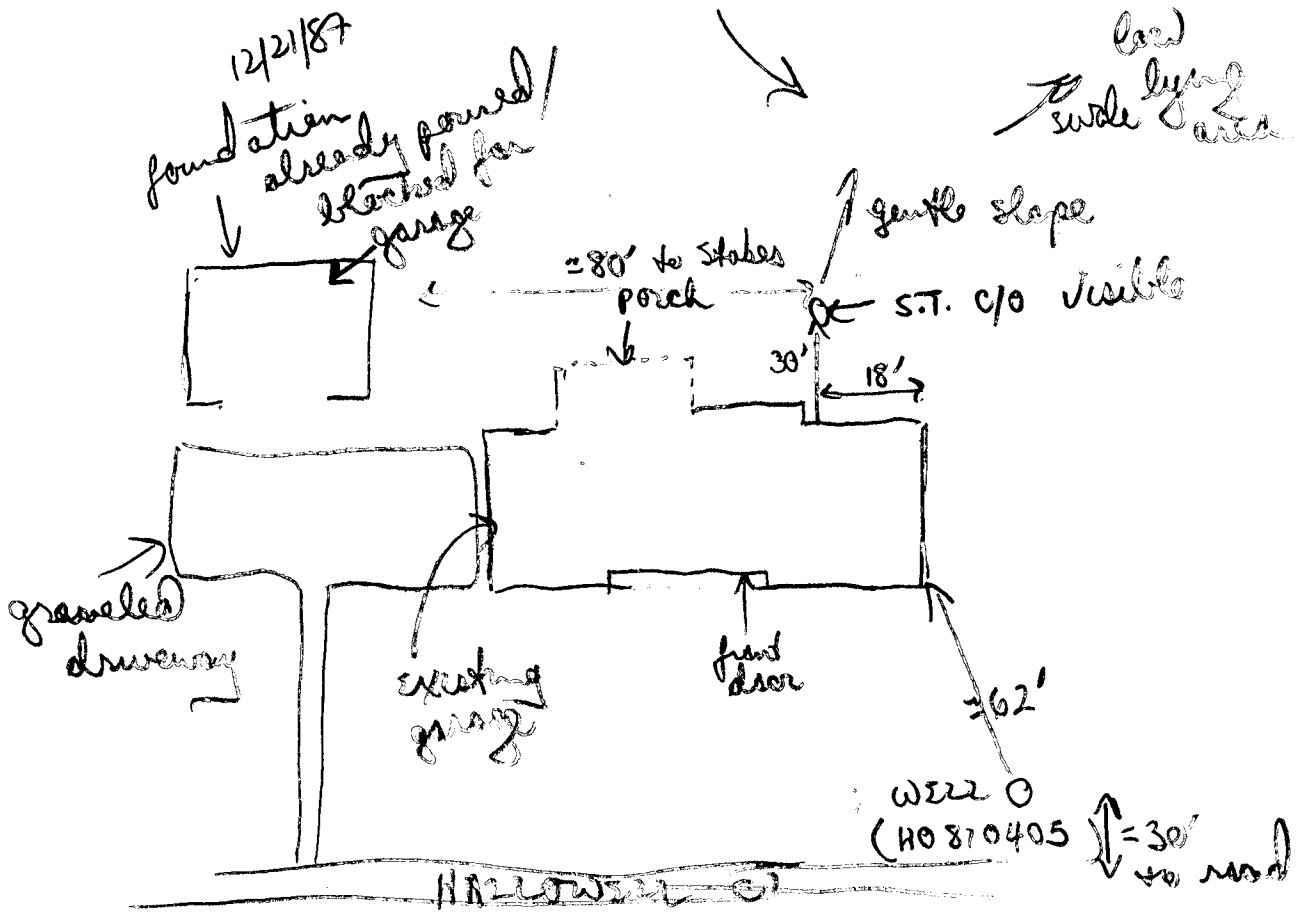 12/21/87
foundation
already poured/
blocked for
garage
low
lying
area
swale
gentle slope
≃80' to stakes
porch
S.T. C/O visible
30'
18'
graveled
driveway
existing
garage
front
door
≃62'
WELL
(HO810405)
=30'
to road
HALLOWELL CT